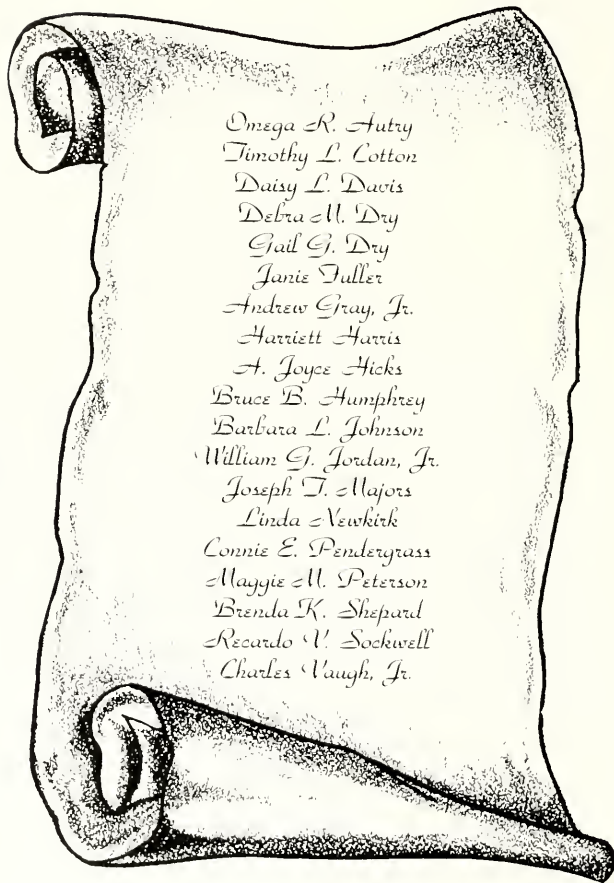 Omega R. Autry
Timothy L. Cotton
Daisy L. Davis
Debra M. Dry
Gail G. Dry
Janie Fuller
Andrew Gray, Jr.
Harriett Harris
A. Joyce Hicks
Bruce B. Humphrey
Barbara L. Johnson
William G. Jordan, Jr.
Joseph T. Majors
Linda Newkirk
Connie E. Pendergrass
Maggie M. Peterson
Brenda K. Shepard
Recardo V. Sockwell
Charles Vaugh, Jr.